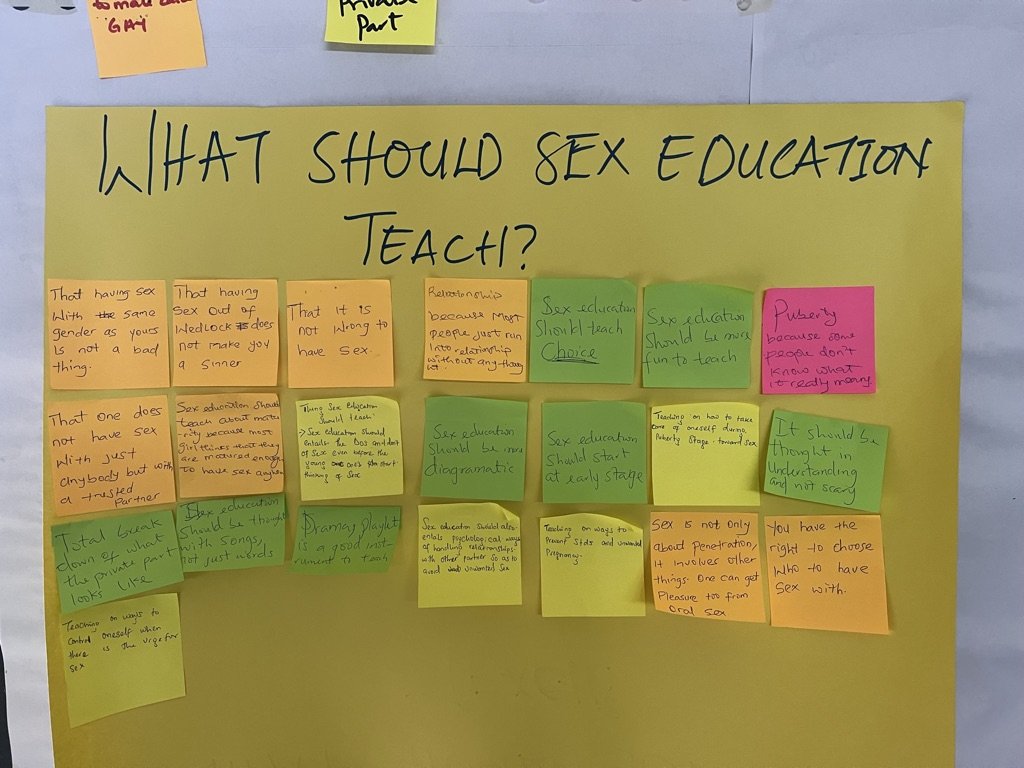 to make
GAY
Private
Part
WHAT SHOULD SEX EDUCATION
TEACH?
That having sex
With the same
gender as yours
Is not a bad
thing.
That having
Sex out of
Wedlock does
not make you
a sinner
That it is
not wrong to
have sex.
Relationship
because Most
people just run
Into relationship
without any
Sex education
Should teach
Choice
Sex education
Should be more
fun to teach
Puberty
because some
people don't
know what
it really means
That one does
not have sex
With just
Anybody but with
a trusted
Partner
Sex education should
teach about matu
rity because most
girl thinks that they
are matured enough
to have sex
Thing Sex Education
Should teach
→ Sex education should
entails the Dos and don't
of Sex even before the
young start
thinking of Sex
Sex education
Should be more
diagramatic
Sex education
Should start
at early stage
Teaching on how to take
care of oneself during
Puberty Stage toward Sex
It should be
thought in
Understanding
and not scary
Total break
down of what
the private part
looks like
Sex education
Should be thought
with songs,
not just words
Drama, playlet
is a good inst-
rument to teach
Sex education Should also
entails psychological ways
of handling relationships
with other partner So as to
avoid unwanted Sex
Teaching on ways to
Prevent Stds and unwanted
Pregnancy.
Sex is not only
about Penetration,
it involves other
things. One can get
Pleasure too from
Oral sex.
You have the
right to choose
Who to have
Sex with.
Teaching on ways to
Control oneself when
there is the urge for
Sex